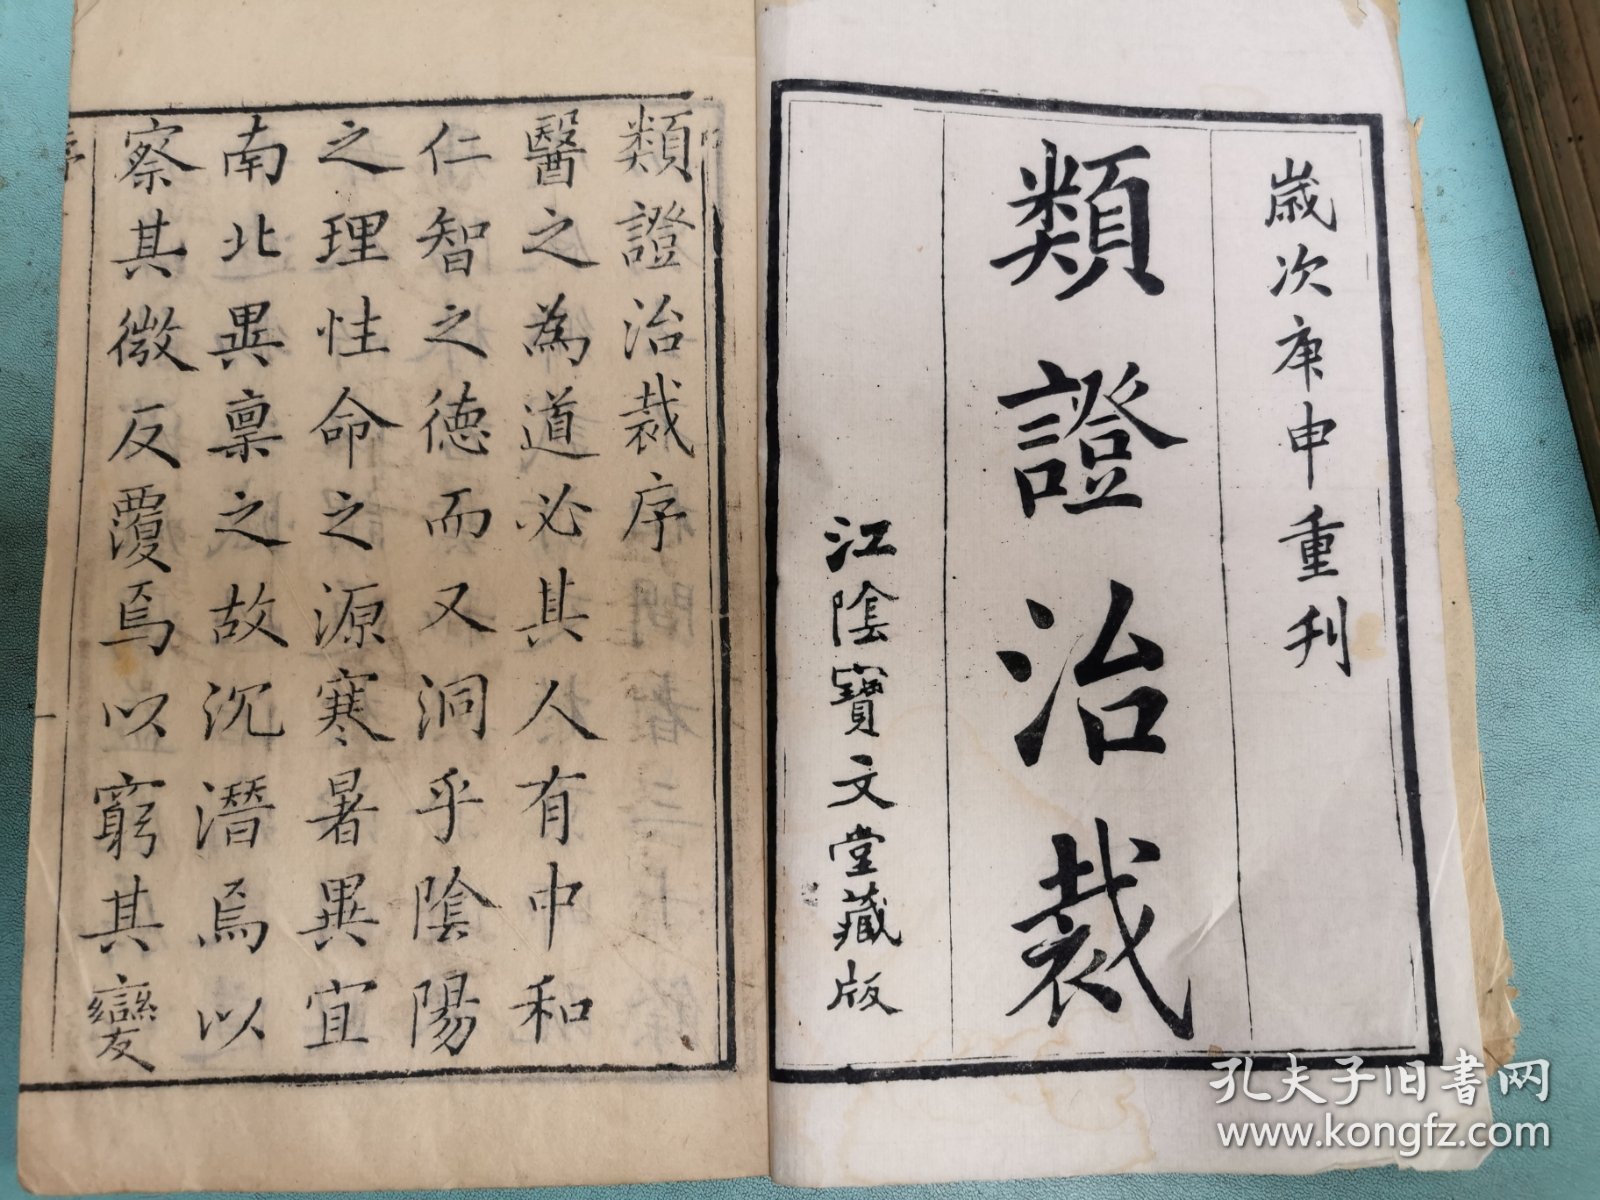 歲次庚申重刋
類證治裁
江陰寶文堂藏版
類證治裁序
醫之為道必其人有中和
仁智之德而又洞乎陰陽
之理性命之源寒暑異宜
南北異稟之故沉潛焉以
察其微反覆焉以窮其變
序
孔夫子旧书网
www.kongfz.com